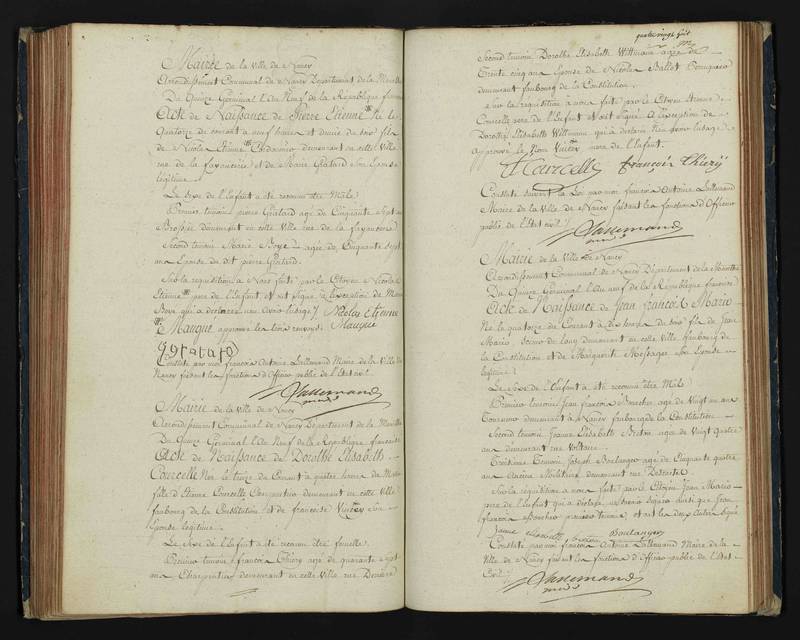 Mairie de la Ville de Nancy
Arrondissement Communal de Nancy Département de la Meurthe
Du Quinze Germinal l'an Neuf de la République française
Acte de Naissance de Pierre Etienne Né le
Quatorze du courant à neuf heures et demie du soir fils
de Nicolas Etienne demeurant en cette Ville
rue de la fayancerie et de Marie Gratard son Epouse
légitime
Le Sexe de l'Enfant a été reconnu être Mâle
Premier témoin pierre Gratard agé de Cinquante Sept ans
Brossier demeurant en cette Ville rue de la fayancerie
Second témoin Marie Boye agée de Cinquante Sept
ans Epouse du dit pierre Gratard.
Sur la requisition à Nous faite par le Citoyen Nicolas
Etienne pere de l'Enfant et ont signé à l'exception de Marie
Boye qui a déclaré son usage Nicolas Etienne
Mangue approuvé les trois renvois Mangue
g gratard
Constaté par moi françois Antoine Lallemand Maire de la Ville de
Nancy faisant les fonctions d'Officier public de l'Etat civil
Lallemand
Mairie de la Ville de Nancy
Arrondissement Communal de Nancy Département de la Meurthe
Du Quinze Germinal l'an Neuf de la République française
Acte de Naissance de Dorothé Elisabeth
Courcelle Née le treize du Courant à quatre heures du Matin
fille d'Etienne Courcelle Charpentier demeurant en cette Ville
faubourg de la Constitution et de françoise son
Epouse légitime
Le Sexe de l'Enfant a été reconnu être femelle
Premier témoin françois Thiery agé de quarante sept
ans Charpentier demeurant en cette Ville rue
quatre vingt huit
Second témoin Dorothé Elisabeth Wittmann agée de
Trente cinq ans Epouse de Nicolas Ballot
demeurant faubourg de la Constitution.
Sur la requisition à nous faite par le Citoyen Etienne
Courcelle pere de l'Enfant et ont signé à l'exception de
Dorothé Elisabeth Wittmann qui a déclaré n'en avoir l'usage
Approuvé le Nom pere de l'Enfant.
E Courcelle françois Thiery
Constaté suivant la Loi par moi françois Antoine Lallemand
Maire de la Ville de Nancy faisant les fonctions d'Officier
public de l'Etat civil
Lallemand
Mairie de la Ville de Nancy
Arrondissement Communal de Nancy Département de la Meurthe
Du Quinze Germinal l'an neuf de la République française
Acte de Naissance de Jean françois Mario
Né le quatorze du Courant à dix heures du soir fils de Jean
Mario, Scieur de long demeurant en cette Ville faubourg de
la Constitution et de Marguerite Messager son Epouse
légitime
Le Sexe de l'Enfant a été reconnu être Mâle
Premier temoin Jean françois agé de Vingt un ans
Tonnelier demeurant à Nancy faubourg de la Constitution
Second temoin Jeanne Elisabeth Breton agée de Vingt Quatre
ans demeurant rue Voltaire
Troisieme Temoin Joseph Boulanger agé de Cinquante quatre
ans Militaire demeurant rue Descartes
Sur la requisition à nous faite par le Citoyen Jean Mario
pere de l'Enfant qui a déclaré ne savoir signer ainsi que Jean
françois premier temoin et ont les deux autres signé
Jeanne Elisabeth breton Boulanger
Constaté par moi françois Antoine Lallemand Maire de la
Ville de Nancy faisant les fonctions d'Officier public de l'Etat
Civil
Lallemand